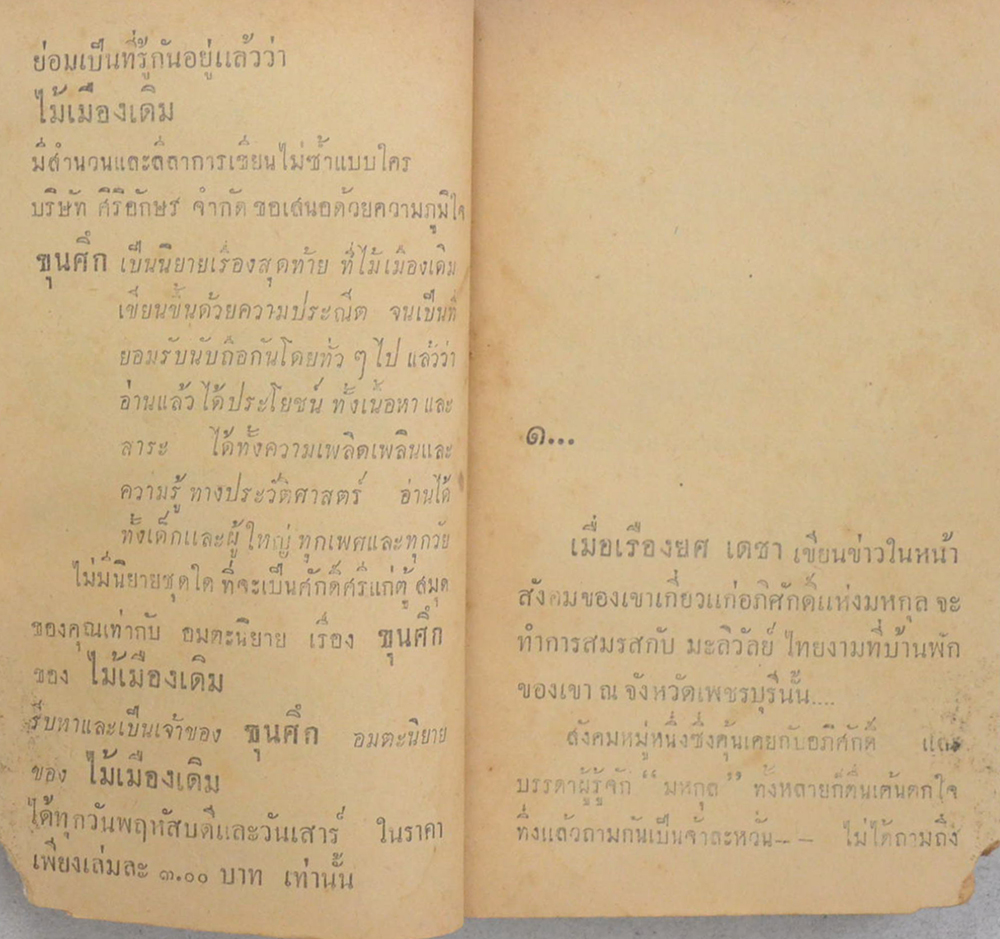 ย่อมเป็นที่รู้กันอยู่แล้วว่า
ไม้เมืองเดิม
มีสำนวนและลีลาการเขียนไม่ซ้ำแบบใคร
บริษัท ศิริอักษร จำกัด ขอเสนอด้วยความภูมิใจ
ขุนศึก เป็นนิยายเรื่องสุดท้าย ที่ไม้เมืองเดิม
เขียนขึ้นด้วยความประณีต จนเป็นที่
ยอมรับนับถือกันโดยทั่ว ๆ ไป แล้วว่า
อ่านแล้ว ได้ประโยชน์ ทั้งเนื้อหา และ
สาระ ได้ทั้งความเพลิดเพลินและ
ความรู้ ทางประวัติศาสตร์ อ่านได้
ทั้งเด็กและผู้ใหญ่ ทุกเพศและทุกวัย
ไม่มีนิยายชุดใด ที่จะเป็นศักดิ์ศรีแก่ตู้ สมุด
ของคุณเท่ากับ อมตะนิยาย เรื่อง ขุนศึก
ของ ไม้เมืองเดิม
รีบหาและเป็นเจ้าของ ขุนศึก อมตะนิยาย
ของ ไม้เมืองเดิม
ได้ทุกวันพฤหัสบดีและวันเสาร์ ในราคา
เพียงเล่มละ ๓.๐๐ บาท เท่านั้น
๑...
เมื่อเรืองยศ เดชา เขียนข่าวในหน้า
สังคมของเขาเกี่ยวแก่อภิศักดิ์แห่งมหกุล จะ
ทำการสมรสกับ มะลิวัลย์ ไทยงามที่บ้านพัก
ของเขา ณ จังหวัดเพชรบุรีนั้น....
สังคมหมู่หนึ่งซึ่งคุ้นเคยกับอภิศักดิ์ และ
บรรดาผู้รู้จัก “มหกุล” ทั้งหลายก็ตื่นเต้นตกใจ
ทึ่งแล้วถามกันเป็นจ้าละหวั่น-- ไม่ได้ถามถึง